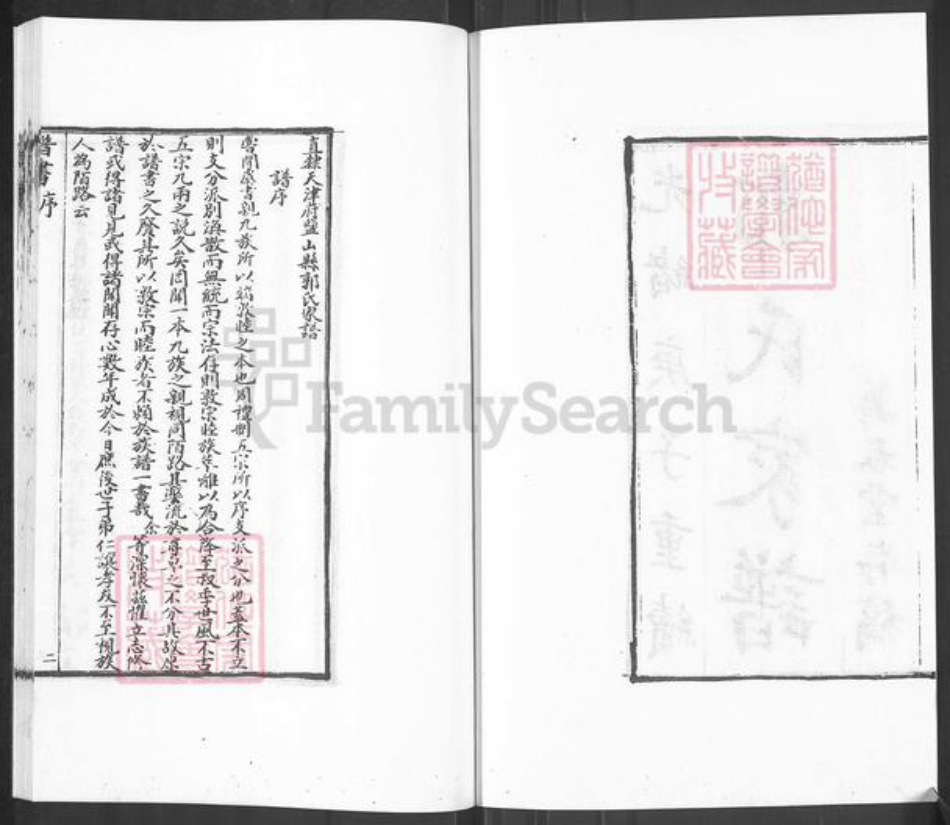 直隸天津府鹽山縣郭氏家譜
譜序
嘗聞虞書親九族所以端敦睦之本也周禮制五宗所以序支派之分也蓋本不立
則支分派別渙散而無統而宗法存則敦宗睦族者雖以為合降至叔季世風不古
五宗九兩之說久矣罔聞一本九族之親視同陌路其弊流於尊卑之不分其故原
於譜書之久廢其所以敦宗而睦族者不賴於族譜一書哉余等深懷茲懼立志修
譜或得諸見見或得諸聞聞存心數年成於今日庶後世子弟仁讓孝友不至視族
人為陌路云
譜書 序
二
猶他家譜學會收藏
光緒庚子重續
氏家譜
FamilySearch